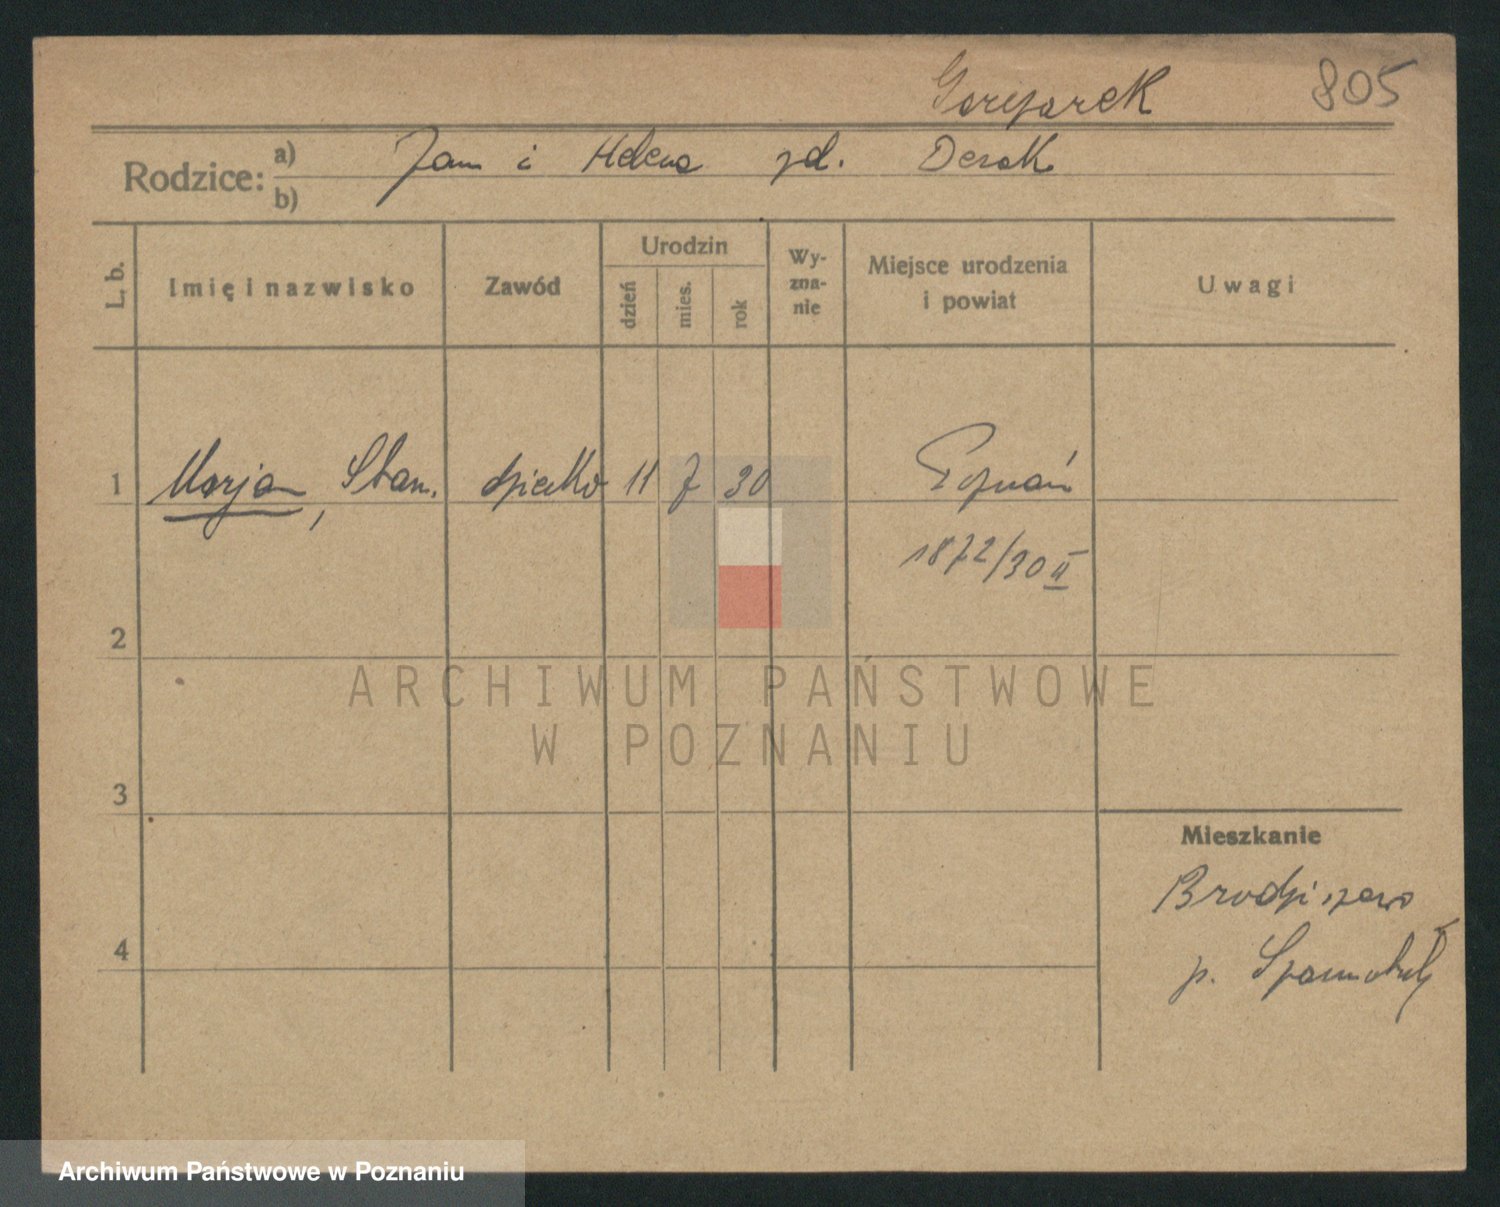 805
Rodzice: a) Jan i Helena zd. Derak
b)
L. b. Imię i nazwisko Zawód Urodzin dzień mies. rok Wy-zna-nie Miejsce urodzenia i powiat Uwagi
1 Marjan, Stan. dziecko 11 7 30 Poznań
1872/30 II
2
ARCHIWUM PAŃSTWOWE
W POZNANIU
3
Mieszkanie
Brodziszewo
4
p. Szamotuły
Archiwum Państwowe w Poznaniu